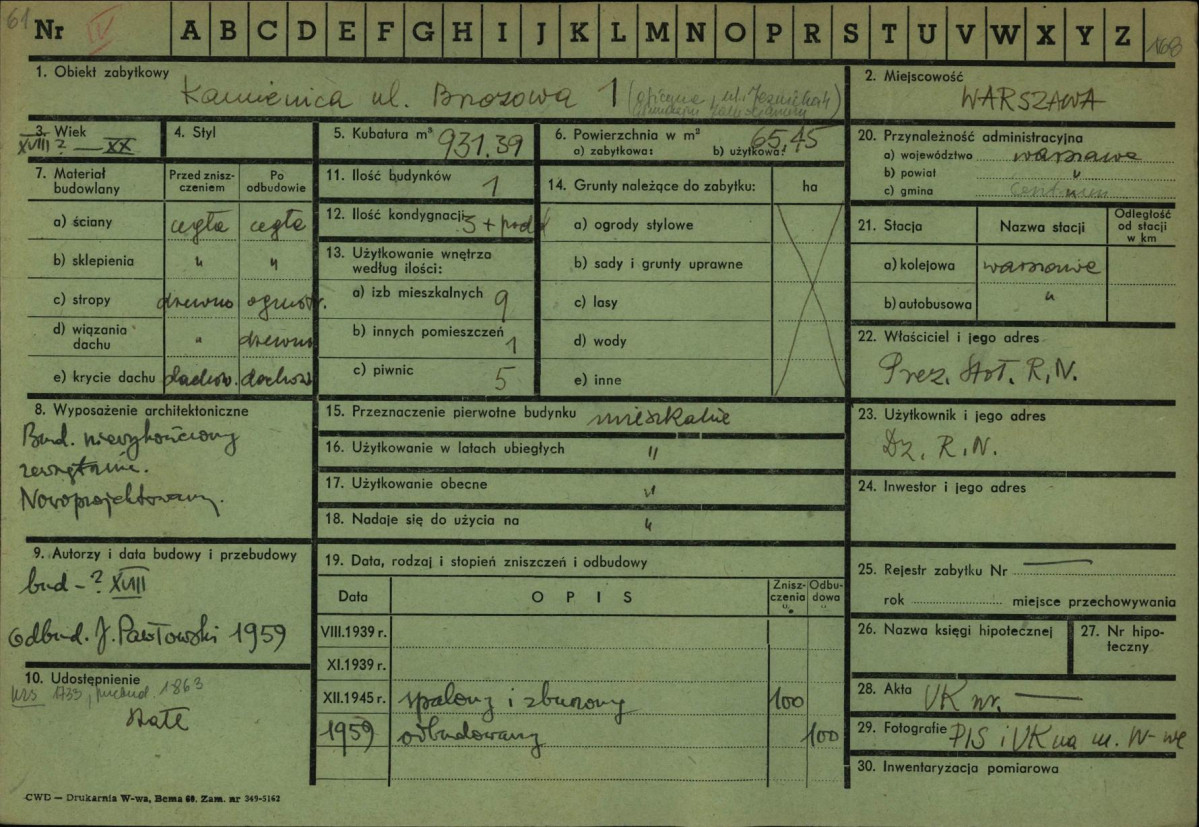 61
Nr IV A B C D E F G H I J K L M N O P R S T U V W X Y Z 168
1. Obiekt zabytkowy
Kamienica ul. Brzozowa 1 (oficyna, ul. Jezuicka 4
2. Miejscowość
WARSZAWA
3. Wiek
XVIII ? — XX
4. Styl
5. Kubatura m³
931.39
6. Powierzchnia w m²
a) zabytkowa: b) użytkowa:
65,45
7. Materiał budowlany
Przed znisz-
czeniem
Po
odbudowie
a) ściany cegła cegła
b) sklepienia " "
c) stropy drewno ogniotr.
d) wiązania
dachu " drewno
e) krycie dachu dachów. dachów
8. Wyposażenie architektoniczne
Bud. niewykończony
zewnętrznie.
Nowoprojektowany.
9. Autorzy i data budowy i przebudowy
bud - ? XVIII
Odbud. J. Pawłowski 1959
10. Udostępnienie
wzs 1733, przebud. 1863
stałe
11. Ilość budynków
1
12. Ilość kondygnacji
3 + podd
13. Użytkowanie wnętrza
według ilości:
a) izb mieszkalnych 9
b) innych pomieszczeń 1
c) piwnic 5
14. Grunty należące do zabytku: ha
a) ogrody stylowe
b) sady i grunty uprawne
c) lasy
d) wody
e) inne
15. Przeznaczenie pierwotne budynku mieszkalne
16. Użytkowanie w latach ubiegłych "
17. Użytkowanie obecne "
18. Nadaje się do użycia na "
19. Data, rodzaj i stopień zniszczeń i odbudowy
Data
OPIS
Znisz-
czenia
%
Odbu-
dowa
%
VIII.1939 r.
XI.1939 r.
XII.1945 r. spalony i zburzony 100
1959 odbudowany 100
20. Przynależność administracyjna
a) województwo warszawa
b) powiat "
c) gmina
21. Stacja
Nazwa stacji
Odległość
od stacji
w km
a) kolejowa warszawa
b) autobusowa "
22. Właściciel i jego adres
Prez. Stoł. R.N.
23. Użytkownik i jego adres
Dz. R.N.
24. Inwestor i jego adres
25. Rejestr zabytku Nr —
rok miejsce przechowywania
26. Nazwa księgi hipotecznej
27. Nr hipo-
teczny
28. Akta
UK nr. —
29. Fotografie PIS i UK na m. W-wę
30. Inwentaryzacja pomiarowa
CWD — Drukarnia W-wa, Bema 60. Zam. nr 349-5162